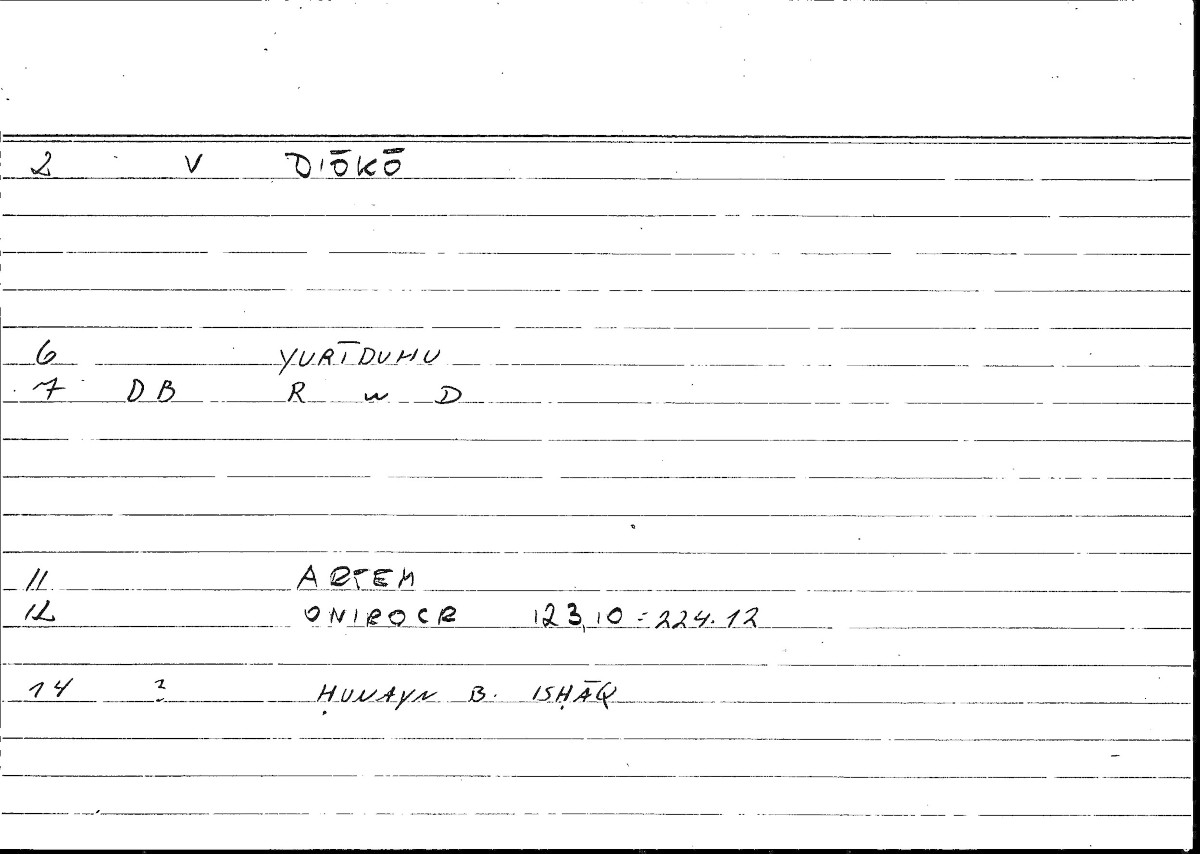 2 V DIŌKŌ
6 YURĪDUHU
7 DB R w D
11 ARTEM
12 ONIROCR 123,10 = 224.12
14 ? ḤUNAYN B. ISḤĀQ